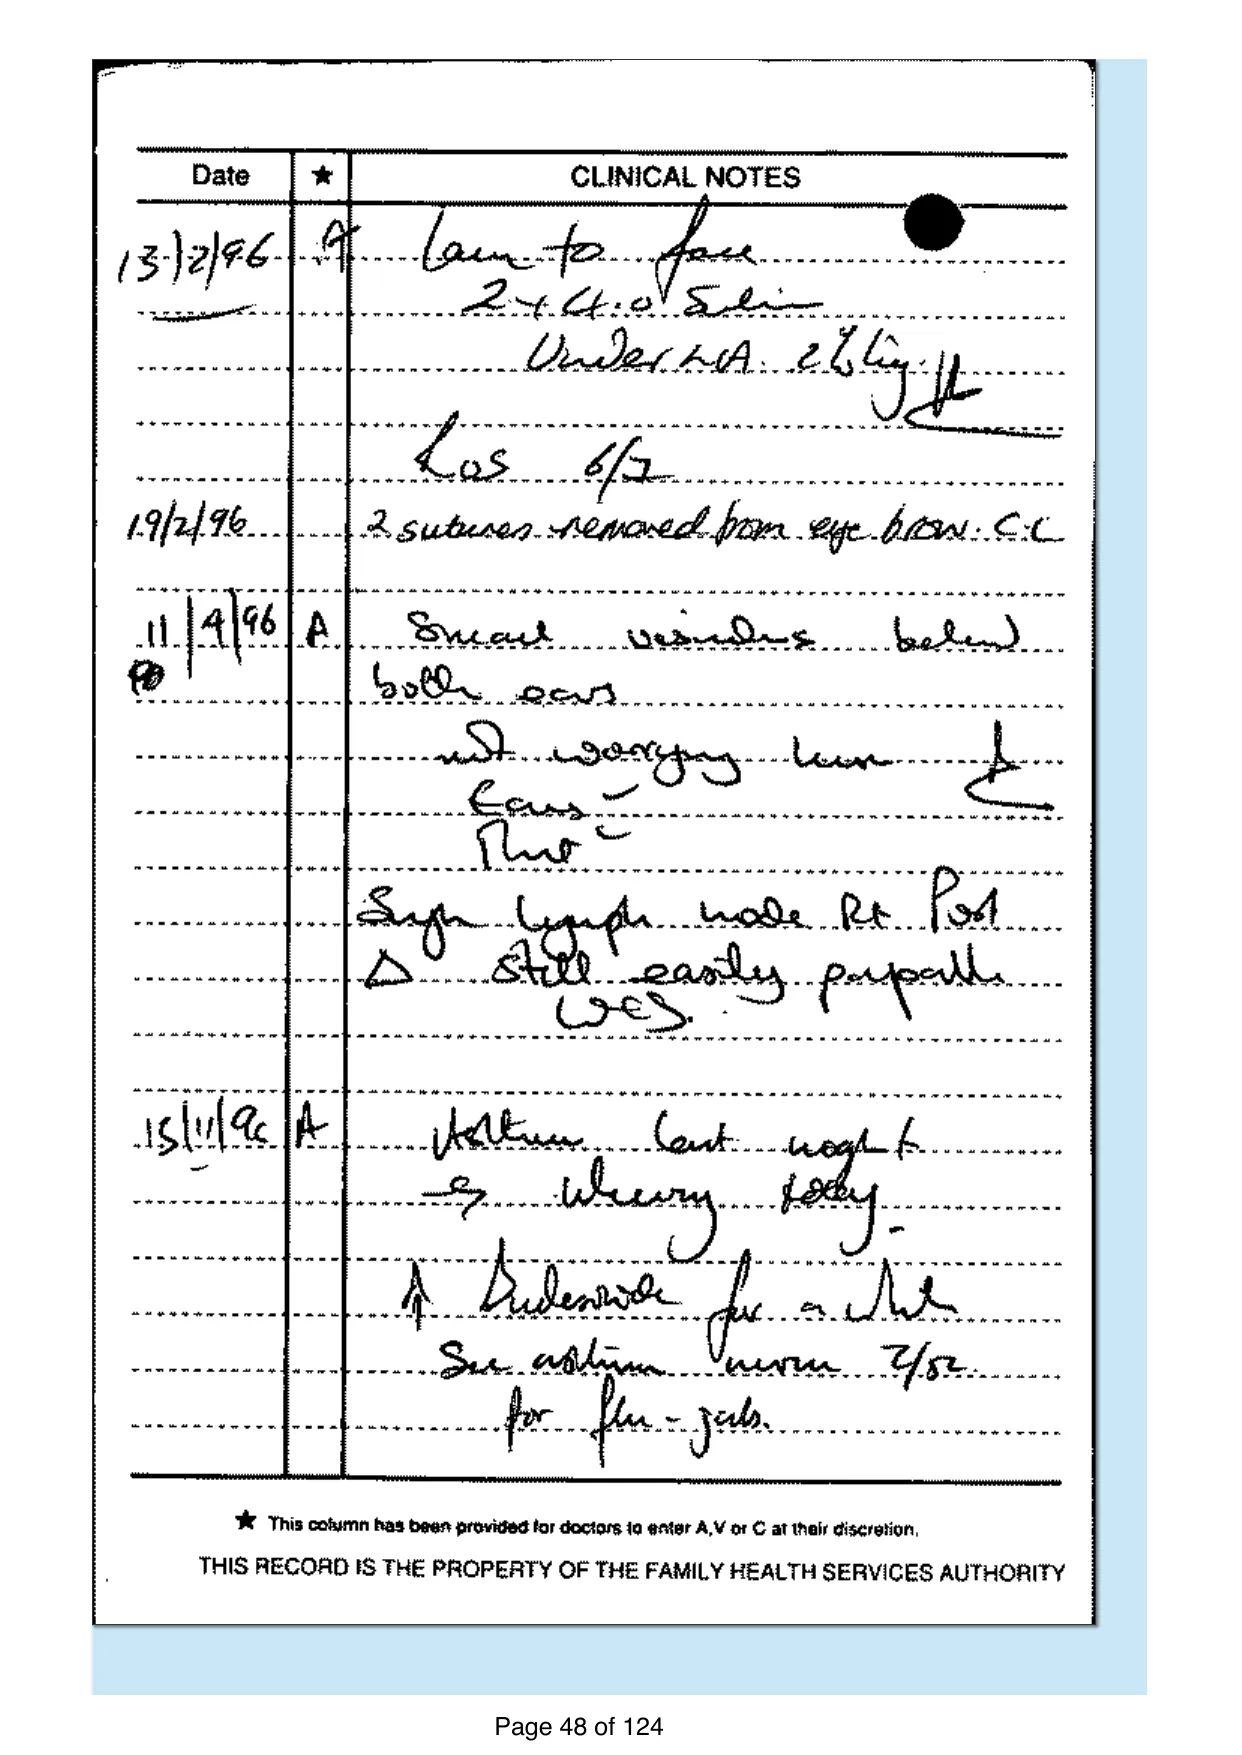 Date ★ CLINICAL NOTES
13/2/96 A Lacn to face
2 x 4.0
Under LA. 2% Lig.
ROS 6/7
19/2/96 2 sutures removed from eye brow. C.C
11/4/96 A Small behind
both ears
not worrying him
Ears
lymph node Rt Post
△ still easily
15/11/96 A Asthma last night
→ wheezy today.
↑ Budesonide for a while
See asthma nurse 2/52
for flu-jabs.
★ This column has been provided for doctors to enter A,V or C at their discretion.
THIS RECORD IS THE PROPERTY OF THE FAMILY HEALTH SERVICES AUTHORITY
Page 48 of 124